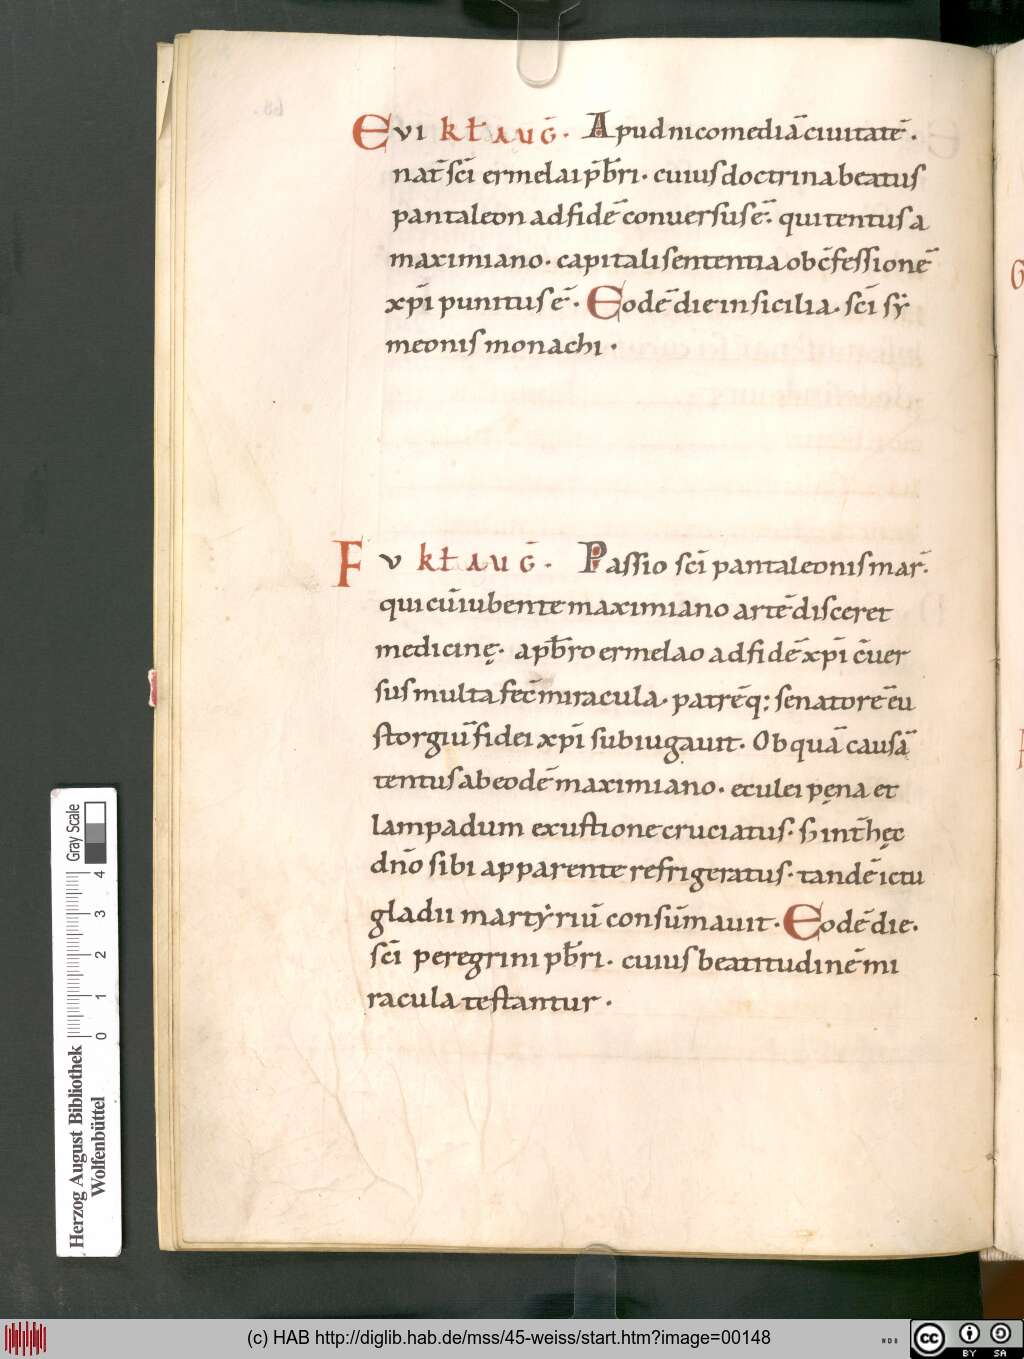 E VI kł AUḠ. Apud nicomediā ciuitatē.
nat̄ sc̄i ermelai pb̄ri. cuius doctrina beatus
pantaleon ad fidē conuersus ē. qui tentus a
maximiano. capitali sententia ob c̄fessionē
xp̄i punitus ē. Eodē die in sicilia. sc̄i sẏ
meonis monachi.
F V kł AUḠ. Passio sc̄i pantaleonis mar̄.
qui cū iubente maximiano artē disceret
medicinę. a pb̄ro ermelao ad fidē xp̄i c̄uer
sus multa fec̄ miracula. patrē q; senatorē eu
storgiū fidei xp̄i subiugauit. Ob quā causā
tentus ab eodē maximiano. eculei pęna et
lampadum exustione cruciatus. s; int̄ hęc
dn̄o sibi apparente refrigeratus. tandē ictu
gladii martẏriū consūmauit. Eodē die.
sc̄i peregrini pb̄ri. cuius beatitudinē mi
racula testantur.
Herzog August Bibliothek
Wolfenbüttel
0 1 2 3 4
Gray Scale
(c) HAB http://diglib.hab.de/mss/45-weiss/start.htm?image=00148
cc BY SA